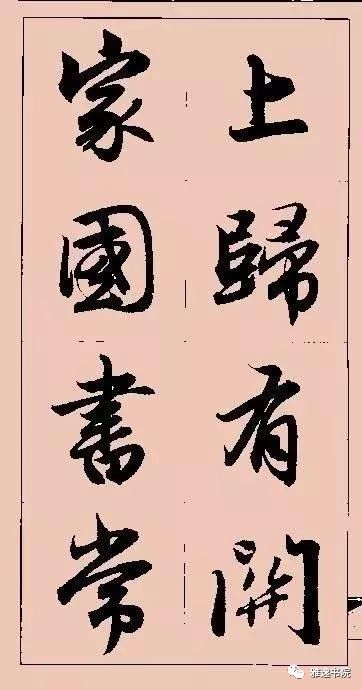 上歸有開
家國書常
雅逸书院